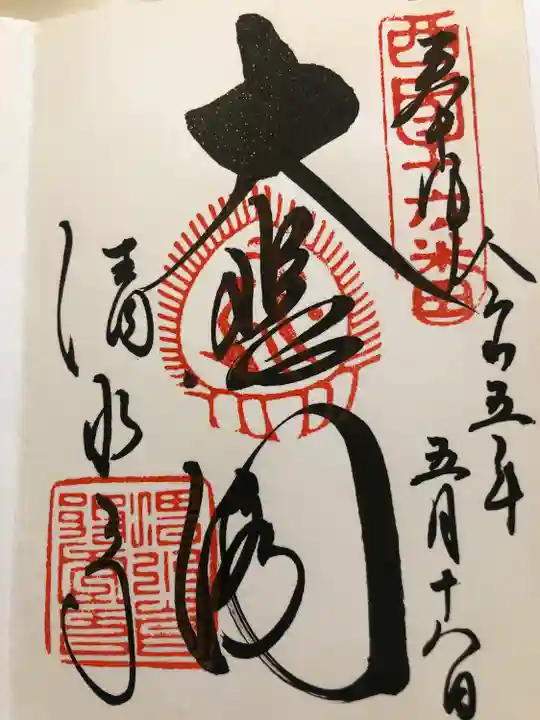 西国十六番
奉拝
令和五年
五月十八日
大悲閣
清水寺